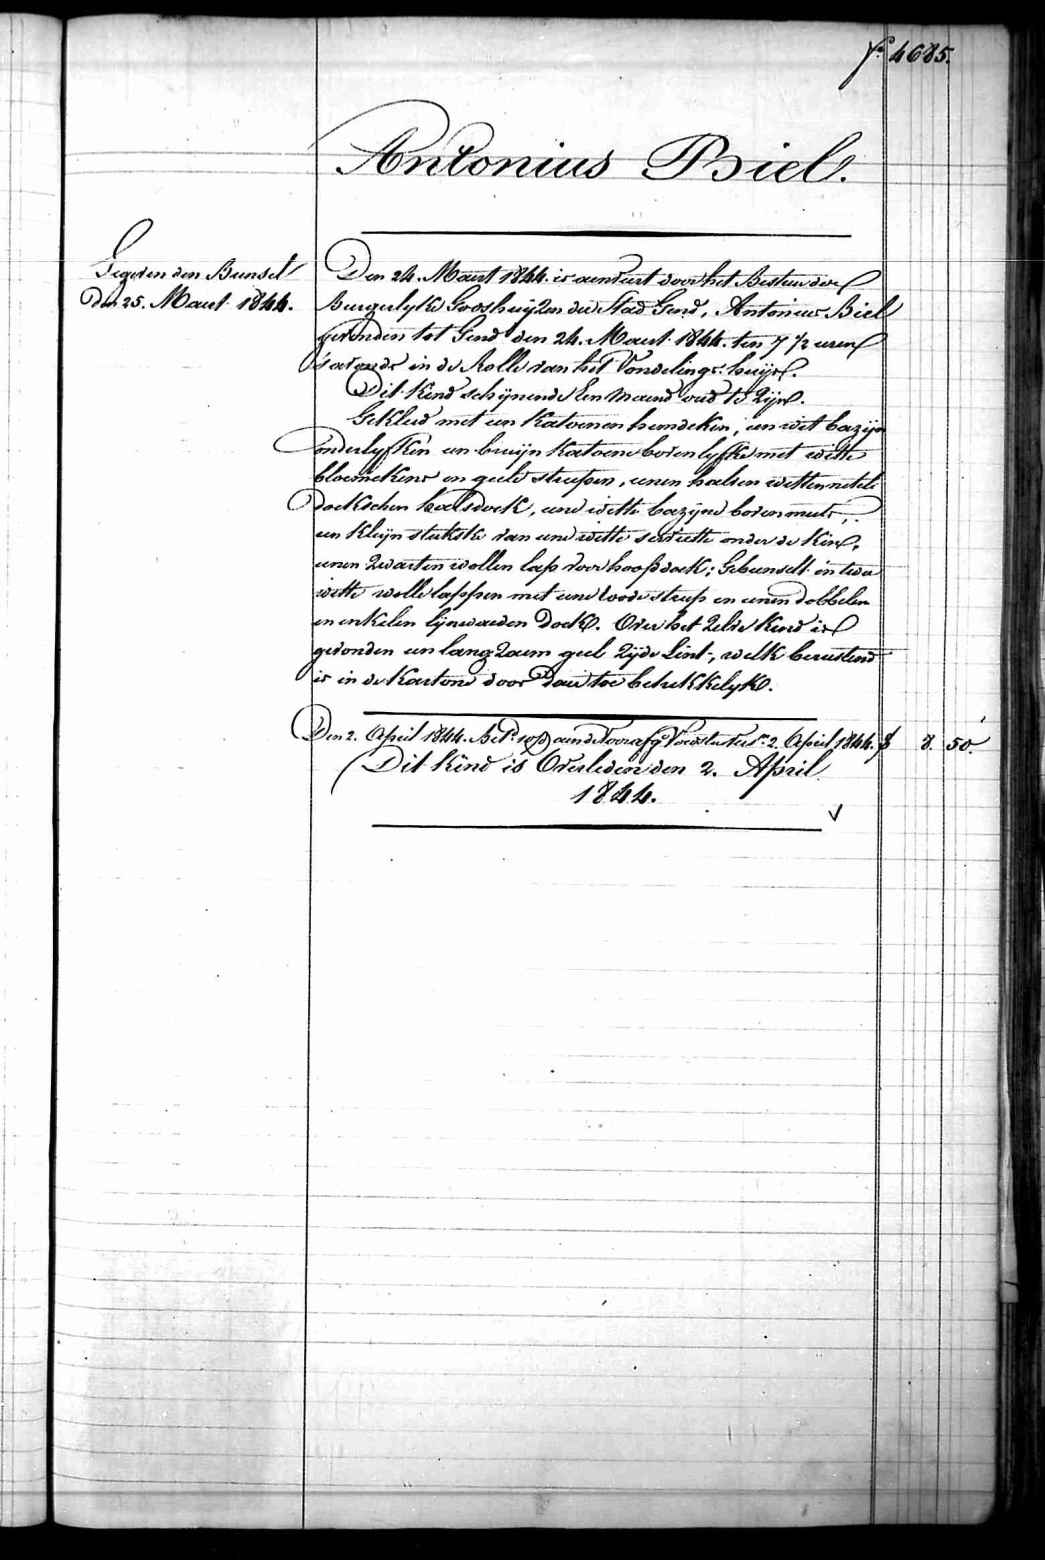 fo. 4685.
Antonius Biel.
Gegeven den Bunsel
den 25. Maart 1844.
Den 24. Maert 1844. is aenveert door het Bestuer der
Burgerlyke Godshuyzen der Stad Gend, Antonius Biel
gevonden tot Gend den 24. Maert 1844. ten 7 1/2 uren
's avonds in de Rolle van het Vondelings-huys.
Dit Kind schynende Een maend oud te Zyn.
Gekleed met een Katoenen hemdeken, een wit bazyn
onderlyfken een bruyn Katoene bovenlyfke met witte
bloemekens en geele streepen, eenen halven witten netel
doekschen halsdoek, eene witte bazyne boven muts,
een kleyn stukske van eene witte serviette onder de Kin,
eenen Zwarten wollen lap voor hoofdoek; Gebunselt in twee
witte wolle lappen met eene roode streep en eenen dobbelen
en enkelen lynwaeden Doek. Over het Zelve Kind is
gevonden een lang Zoom geel Zyde Lint, welk berustend
is in de Kartons door Daer toe betrekkelyk.
Den 2. April 1844. Bet. aende Voedster 2. April 1844. f 8 50.
Dit kind is Overleden den 2. April
1844.